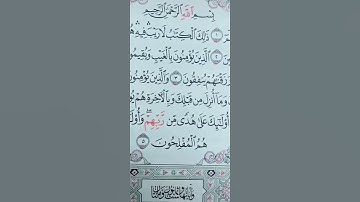 بِسْمِ اللَّهِ الرَّحْمَٰنِ الرَّحِيمِ
۝١ ذَٰلِكَ الْكِتَابُ لَا رَيْبَ ۛ فِيهِ ۛ
۝٢ الَّذِينَ يُؤْمِنُونَ بِالْغَيْبِ وَيُقِيمُو
رَزَقْنَاهُمْ يُنفِقُونَ ۝٣ وَالَّذِينَ يُؤْمِنُو
وَمَا أُنزِلَ مِن قَبْلِكَ وَبِالْآخِرَةِ هُمْ يُو
أُولَٰئِكَ عَلَىٰ هُدًى مِّن رَّبِّهِمْ ۖ وَأُولَٰ
هُمُ الْمُفْلِحُونَ ۝٥